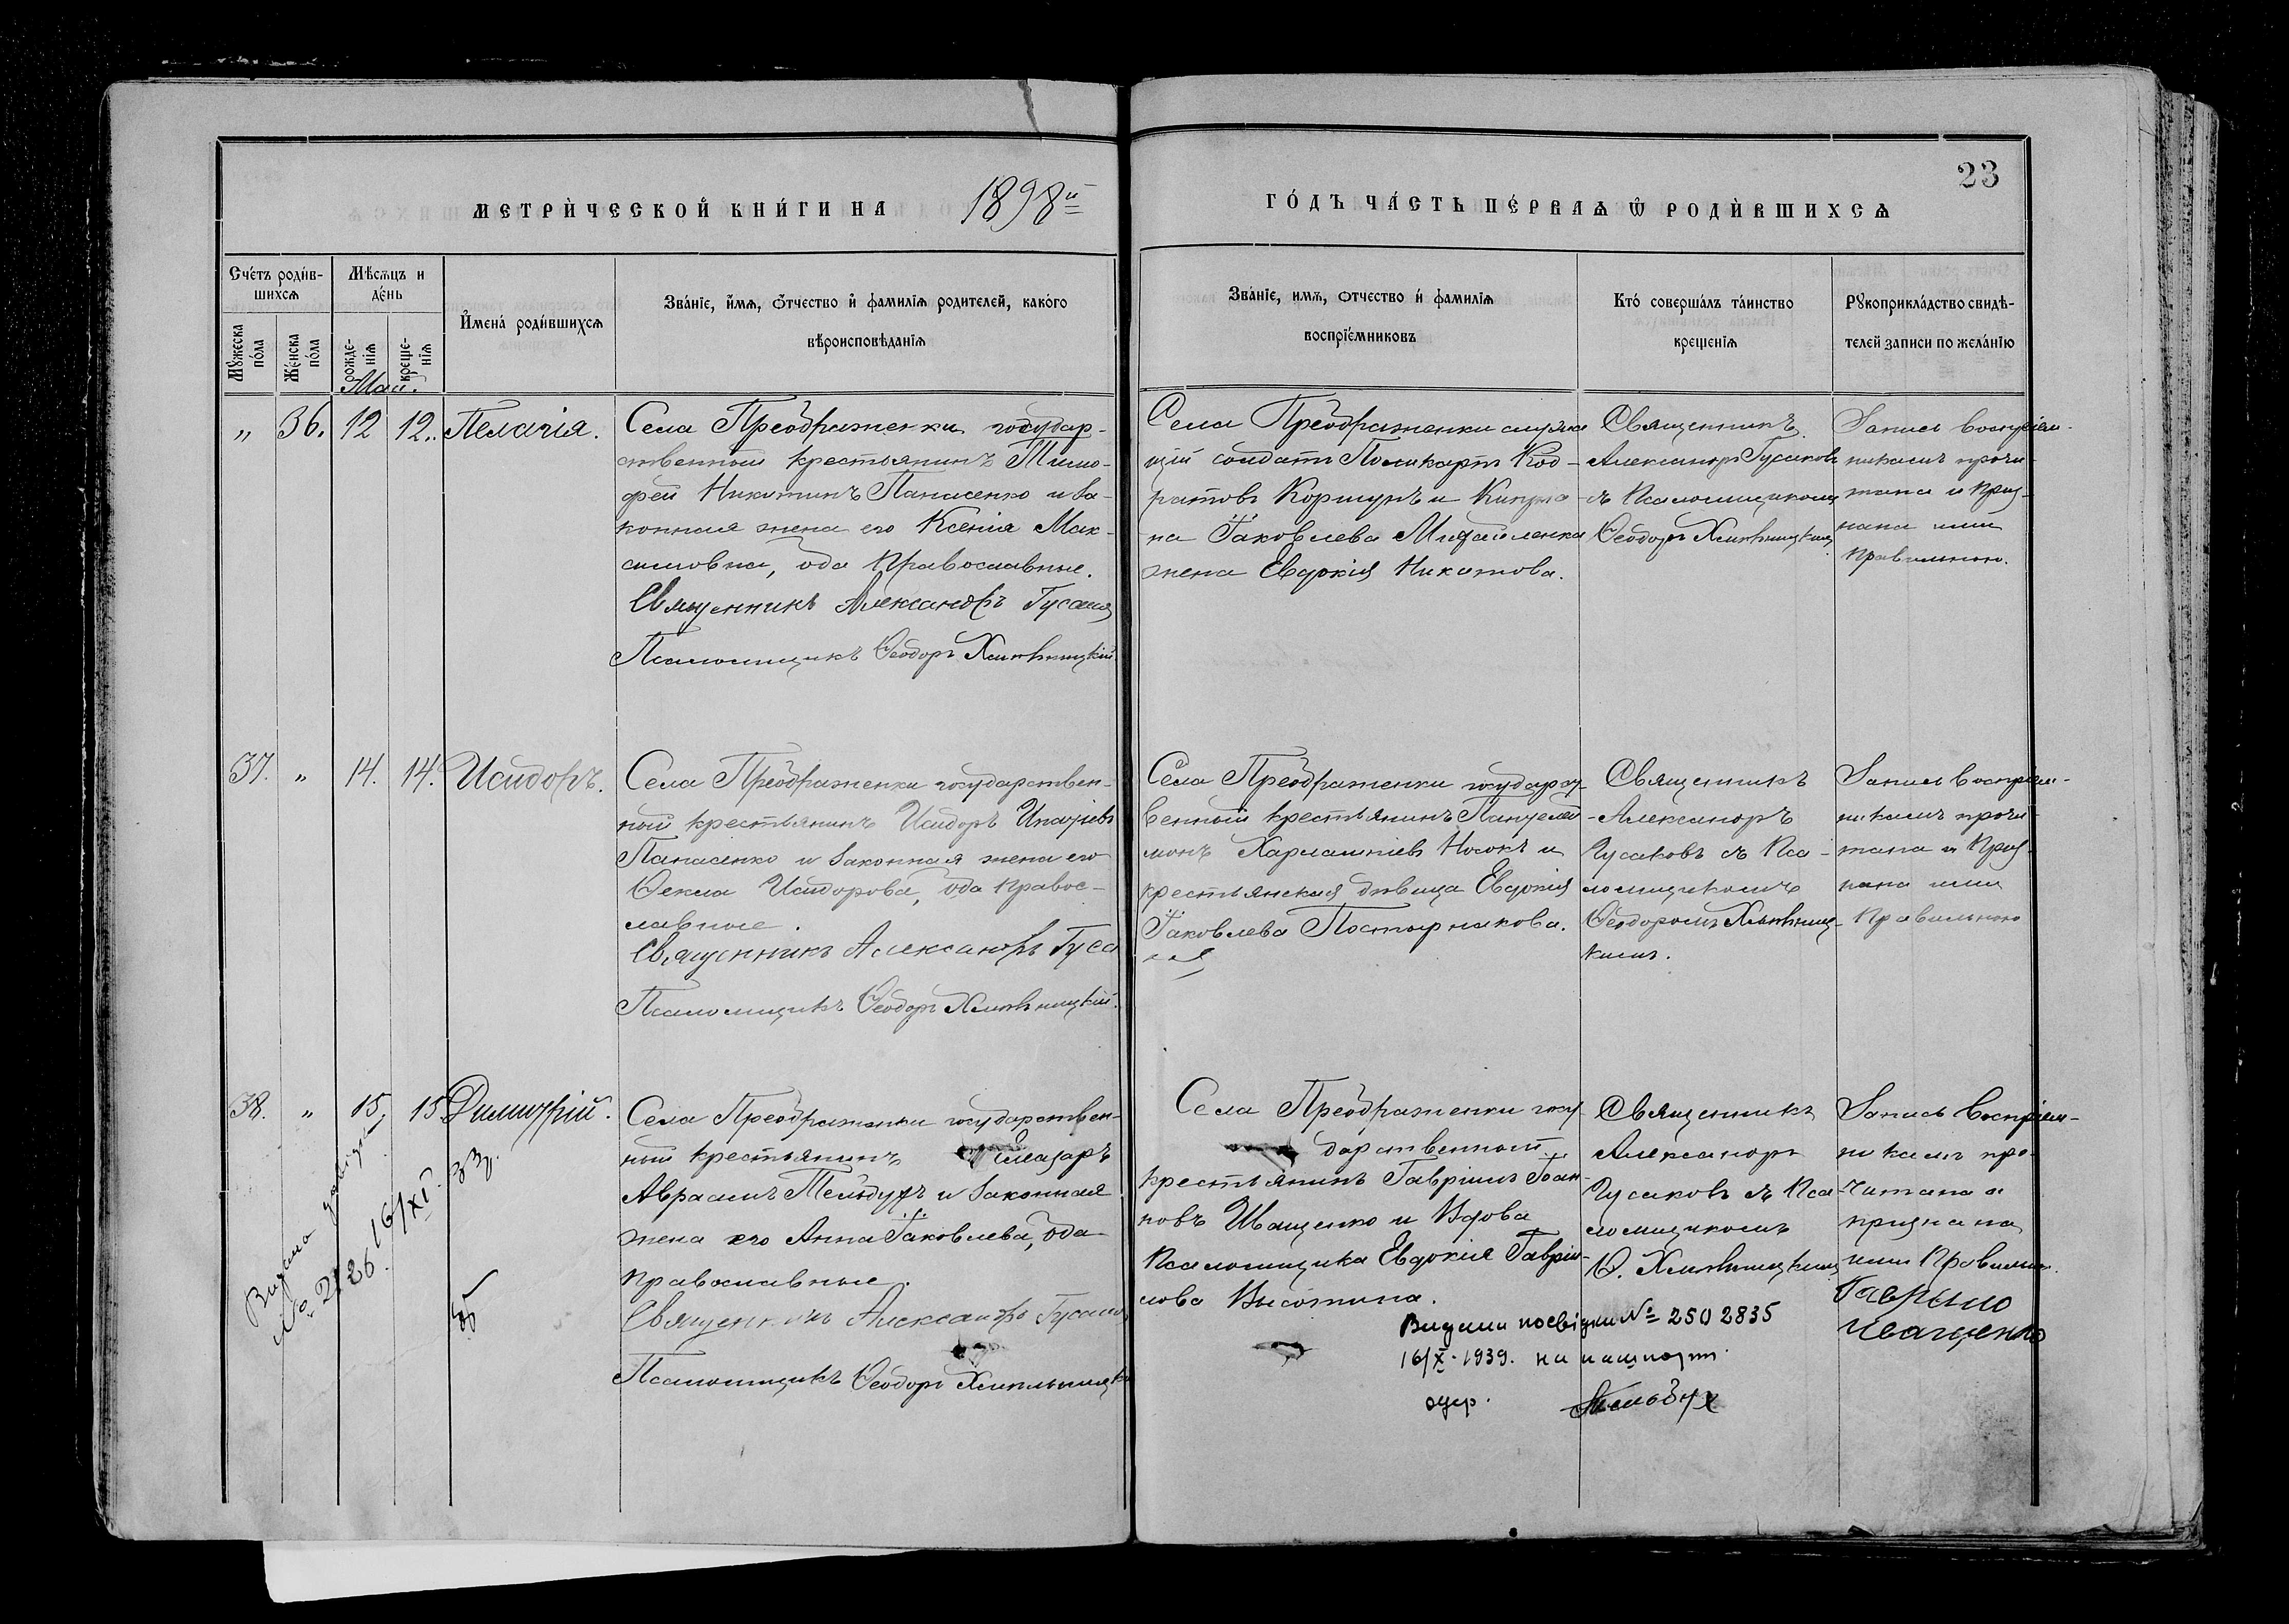 23
МЕТРИ́ЧЕСКОЙ КНИ́ГИ НА 1898й
ГО́ДЪ ЧА́СТЬ ПЕ́РВАѦ Ѿ РОДИ́ВШИХСѦ
Сче́тъ роди́в-
шихсѧ
Мѣ́сѧцъ и
де́нь
Мꙋ́жеска
по́ла
Же́нска
по́ла
рожде-
нїѧ
креще-
нїѧ
И҆мена́ роди́вшихсѧ
Зва́нїе, и҆́мѧ, ѻ҆́тчество и҆ фамилїѧ родителей, како́го
вѣроисповѣ́данїѧ
Зва́нїе, имѧ, ѻтчество и́ фамилїѧ
воспрїе́мниковъ
Кто́ соверша́лъ та́инство
креще́нїѧ
Рꙋкоприкла́дство свидѣ́-
телей записи по жела́нїю
Май.
„ 36. 12 12. Пелагія.
Села Преображенки государ-
ственный крестьянинъ Тимо-
фей Никитинъ Панасенко и за-
конная жена его Ксенія Мак-
симовна, оба православные.
Священникъ Александръ Гусаков
Псаломщикъ Ѳеодоръ Хмѣльницкій
Села Преображенки служа
щій солдатъ Поликарпъ Код-
ратовъ Коршунъ и
на Іаковлева Михайленка
жена Евдокія Никитова.
Священникъ
Александръ Гусаковъ
съ Псаломщикомъ
Ѳеодоръ Хмѣльницким
Запись воспріем-
никамъ прочи-
тана и приз-
нана ими
правильною.
37. „ 14. 14. Исидоръ.
Села Преображенки государствен-
ный крестьянинъ Исидоръ Игнатіевъ
Панасенко и законная жена его
Ѳекла Исидорова, оба правос-
лавные.
Священникъ Александръ Гуса
Псаломщикъ Ѳеодоръ Хмѣльницкій.
Села Преображенки государст-
венный крестьянинъ Пантелей-
монъ Харлампіевъ Носокъ и
крестьянская дѣвица Евдокія
Іаковлева Постырнакова.
Священникъ
Александръ
Гусаковъ съ Пса-
ломщикомъ
Ѳеодоромъ Хмѣльниц-
кимъ.
Запись воспріем-
никамъ прочи-
тана и приз-
нана ими
правильною
38. „ 15. 15 Димитрій.
Села Преображенки государствен-
ный крестьянинъ Елеазаръ
Авраамъ Тельбухъ и законная
жена его Анна Іаковлева, оба
православные.
Священникъ Александръ Гусаков
Псаломщикъ Ѳеодоръ Хмѣльницкі
Села Преображенки госу-
дарственный
крестьянинъ Гавріилъ Іоан-
новъ Иващенко и вдова
Псаломщика Евдокія Гаврии-
лова Высотина.
Священникъ
Александръ
Гусаковъ съ Пса-
ломщикомъ
Ѳ. Хмѣльницким
Запись воспріем-
никамъ про-
читана и
признана
ими правильн.
Гаврыло
Иващенко
Видана довідка
№ 2126 16/XI 33р.
Видали посвідки № 250 2835
16/X-1939. на пашпорт.
одер. Тельбух